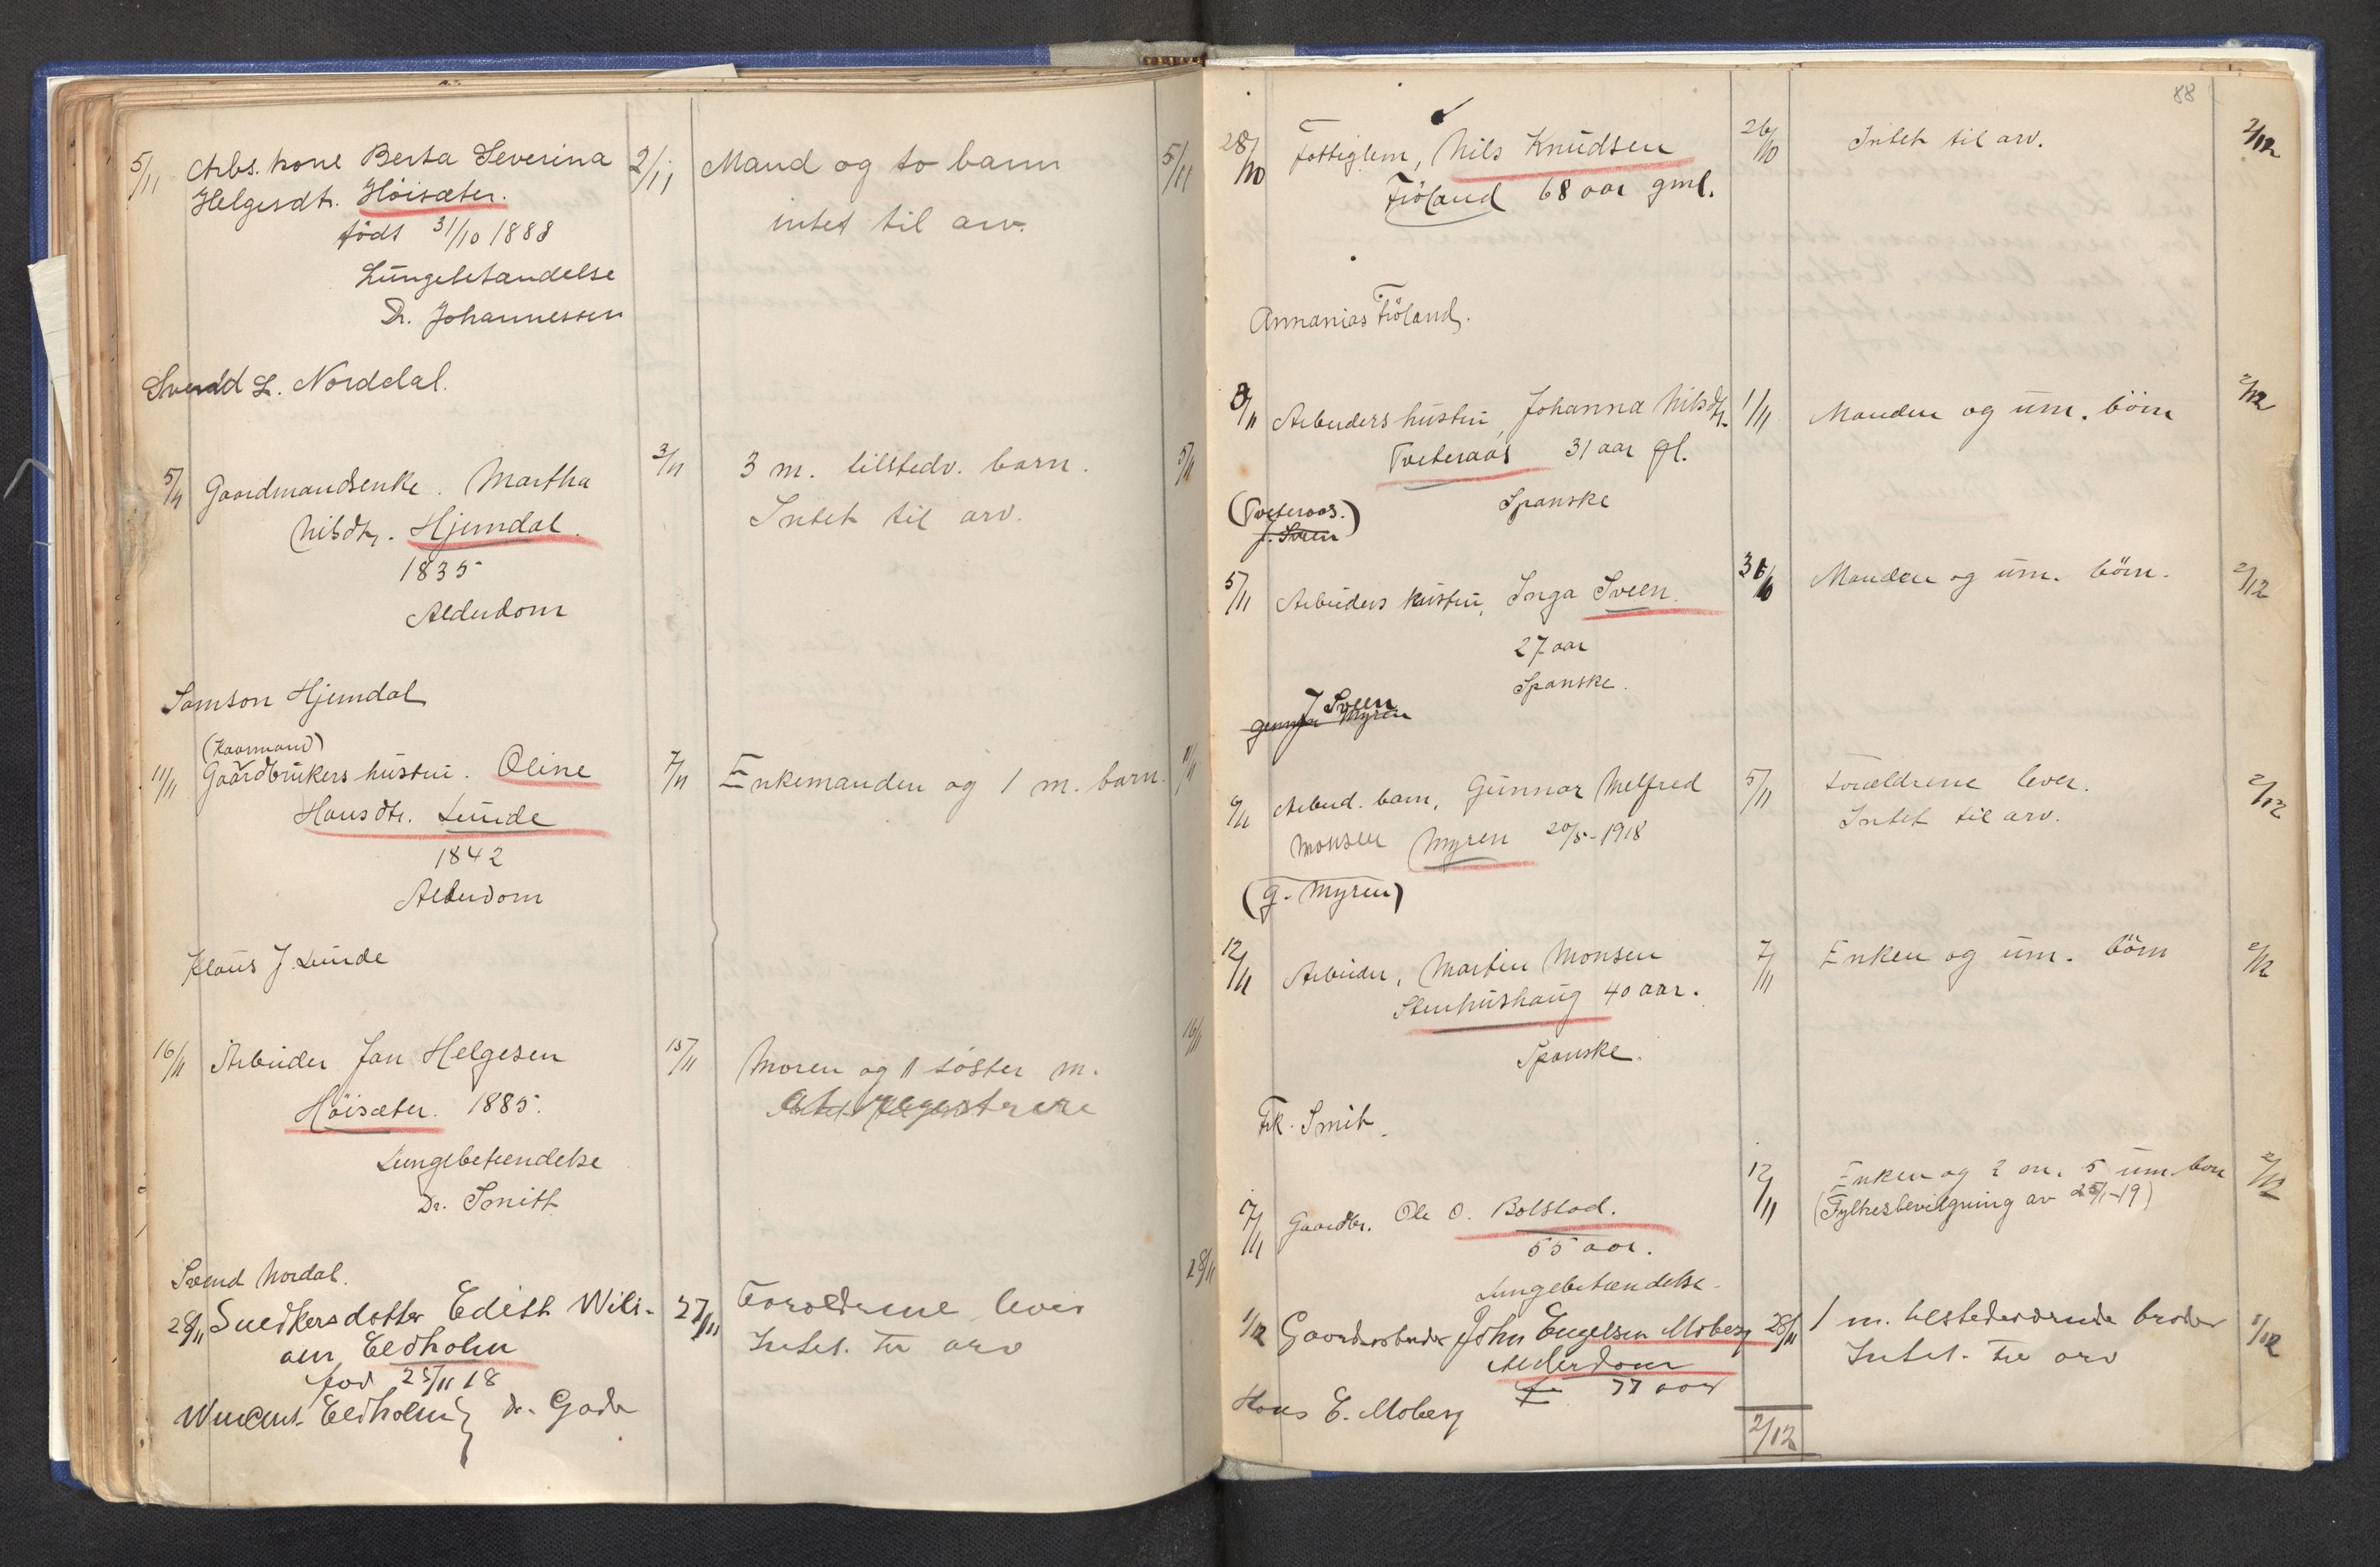 5/11 Arbs. kone Berta Severina 2/11 Mand og to barn 5/11
Helgesdtr. Höisæter. intet til arv.
födt 31/10 1888
Lungebetændelse
Dr. Johannessen
Svend L. Nordal.
5/11 Gaardmandsenke. Martha 3/11 3 m. tilstedv. barn. 5/11
Nilsdtr. Hjemdal. Intet til arv.
1835
Alderdom
Samson Hjemdal
(Kaarmand)
11/11 Gaardbrukers hustru. Oline 7/11 Enkemanden og 1 m. barn. 11/11
Hansdtr. Lunde
1842
Alderdom
Klaus J. Lunde
16/11 Arbeider Jan Helgesen 15/11 Moren og 1 söster m. 16/11
Höisæter. 1885. at registrere
Lungebetændelse
Dr. Smith
Svend Nordal.
28/11 Snedkersdotter Edith Wili- 27/11 Foreldrene lever 28/11
am Eldholm Intet til arv
fød 25/11 18
Eldholm Dr. Gade
88
28/10 Fattiglem, Nils Knudsen 26/10 Intet til arv. 2/12
Fröland 68 aar gml.
Annanias Fröland.
8/11 Arbeiders hustru, Johanna Nilsdtr. 1/11 Manden og um. börn 2/12
Tveteraas 31 aar gl.
Spanske
(Tveteraas.)
J. Sveen
5/11 Arbeiders hustru, Inga Sveen. 31/10 Manden og um. börn. 2/12
27 aar
Spanske.
J Sveen
Myren
9/11 Arbeid. barn, Gunnar Melfred 5/11 Forældrene lever. 2/12
Monsen Myren 20/5-1918 Intet til arv.
(G. Myren)
12/11 Arbeider, Martin Monsen 7/11 Enken og um. börn 2/12
Stenhushaug 40 aar.
Spanske.
Frk. Smith.
17/11 Gaardbr. Ole O. Bolstad. 12/11 Enken og 2 m. 5 um. born 2/12
55 aar. (Fylkesbevilgning av 25/1-19)
Lungebetændelse.
1/12 Gaardsarbeider John Engelsen Moberg 28/11 1 m. tilstedeværende broder 1/12
Alderdom Intet til arv
77 aar
Hans E. Moberg
2/12